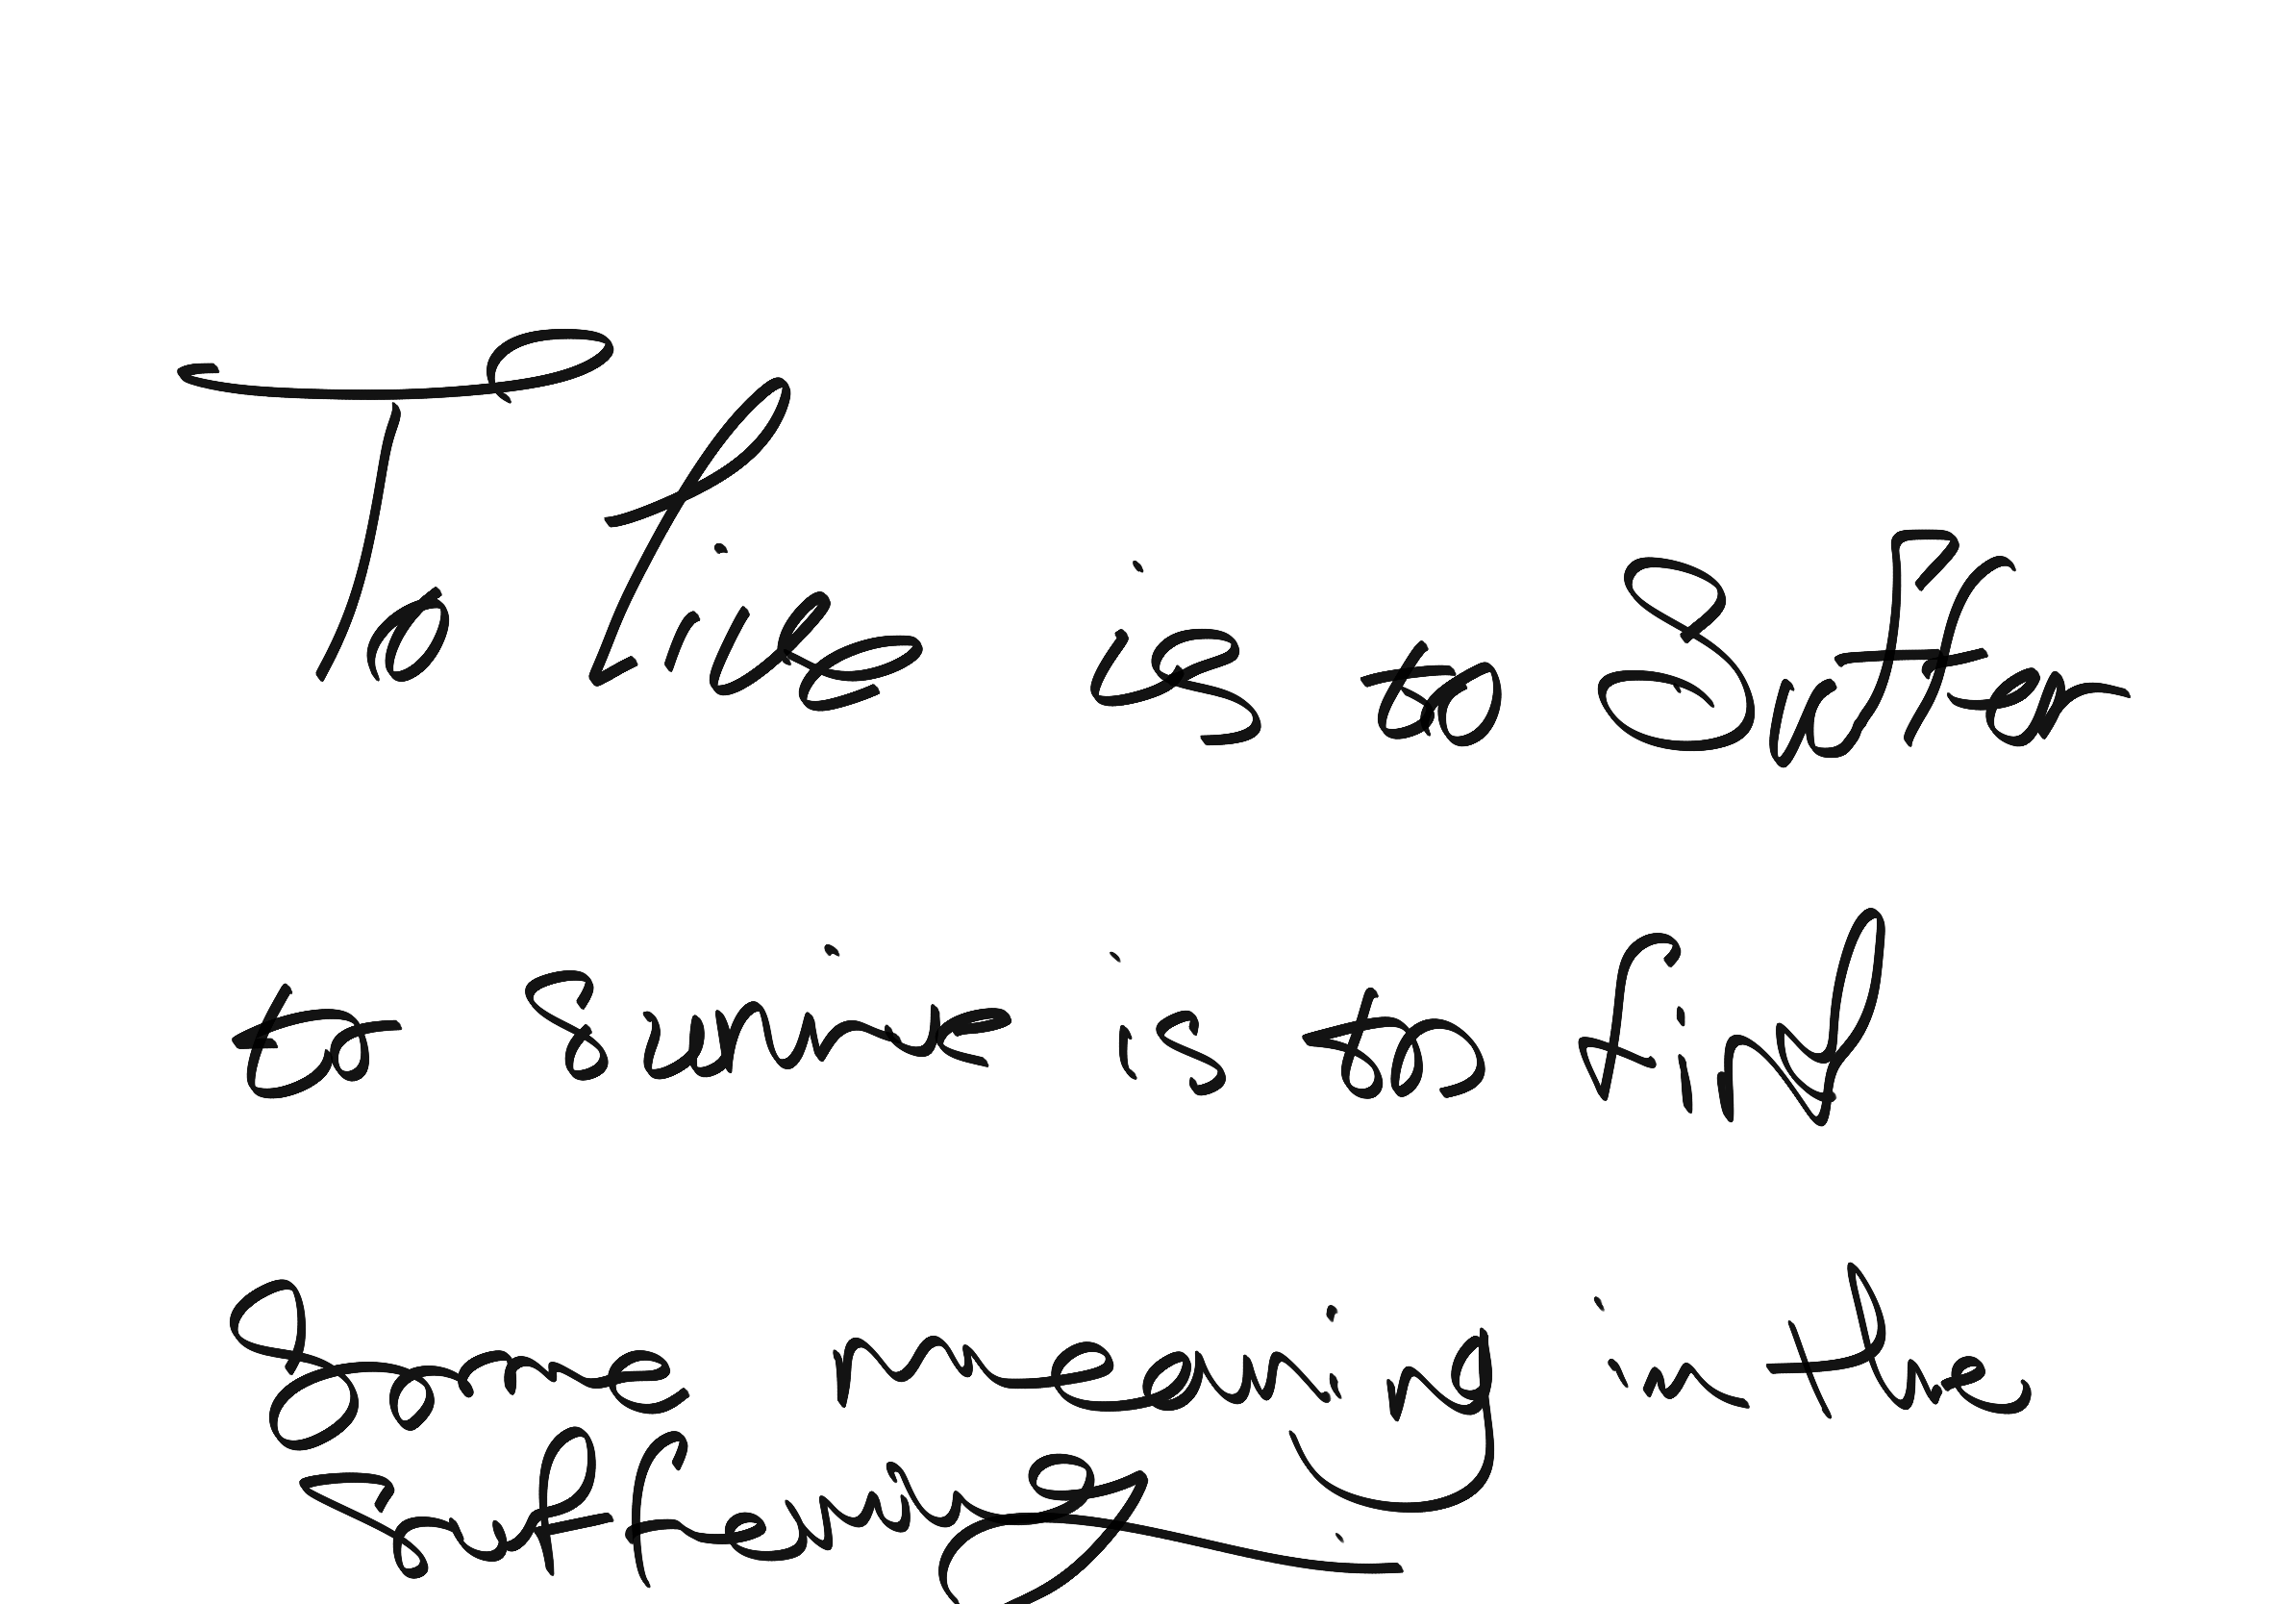 To live is to Suffer
to Survive is to find
Some meaning in the
Suffering